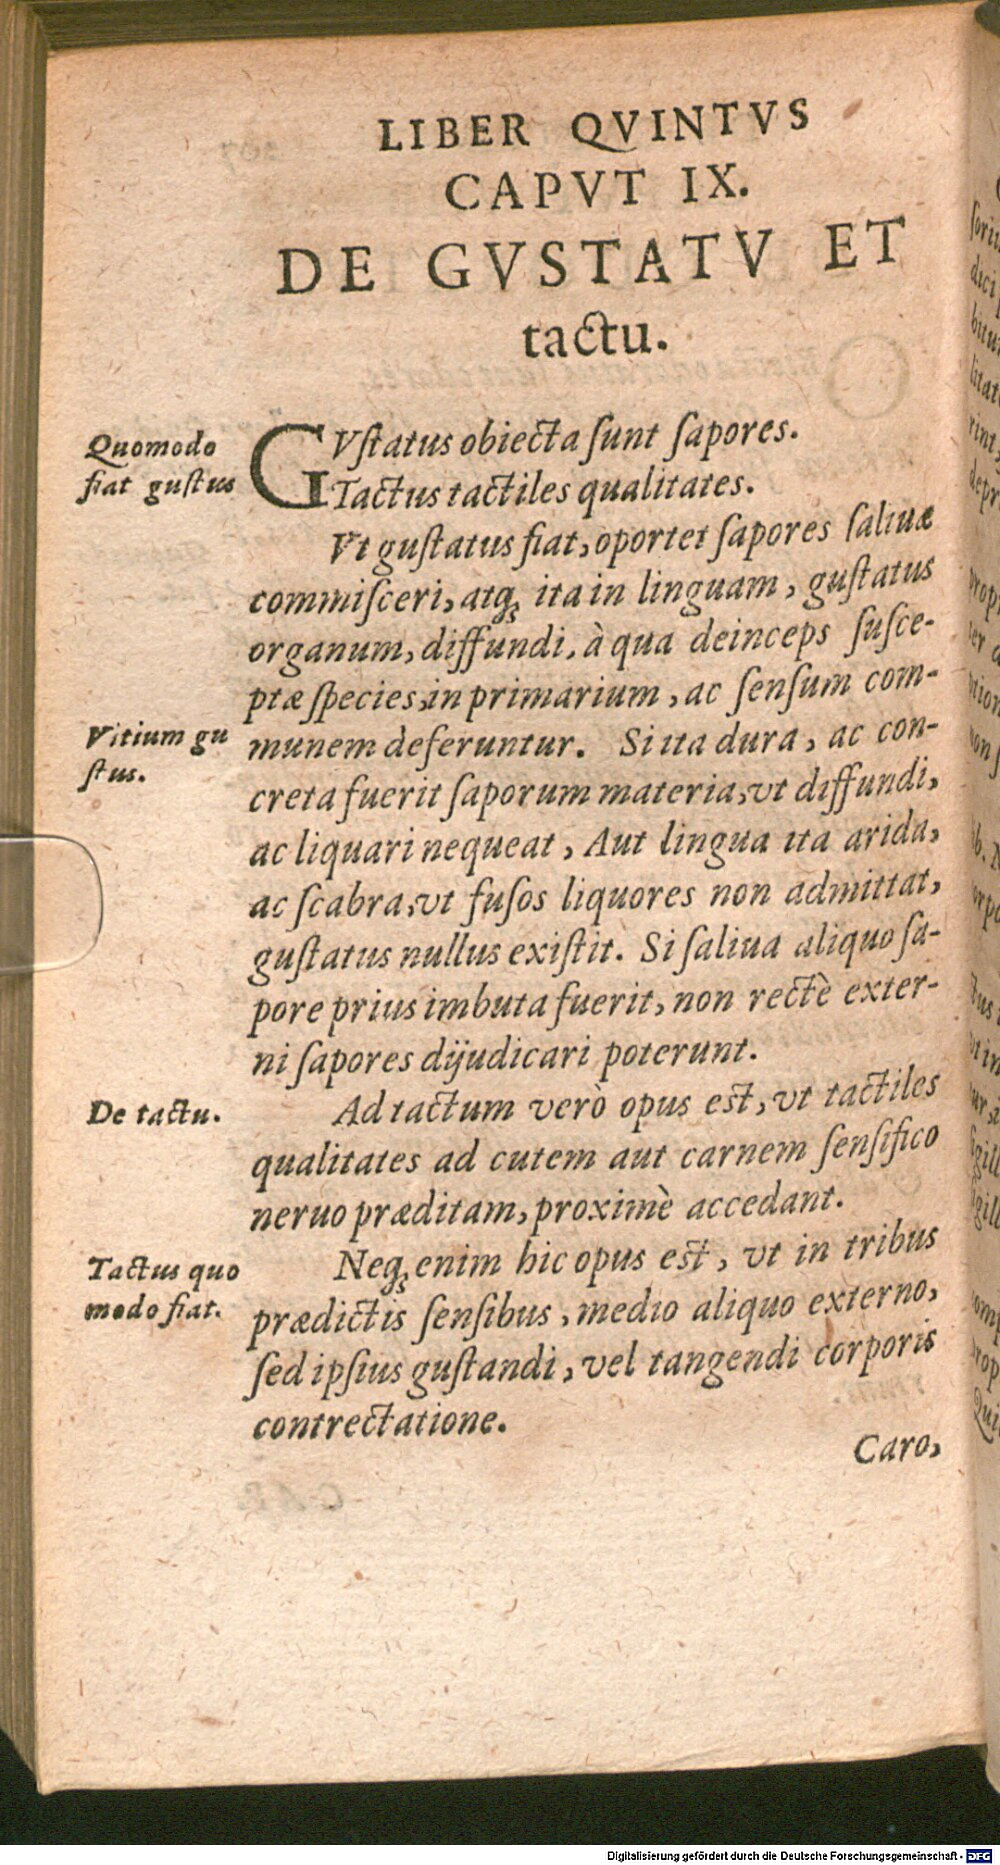 LIBER QVINTVS
CAPVT IX.
DE GVSTATV ET
tactu.
Quomodo
fiat gustus
GVſtatus obiecta ſunt ſapores.
Tactus tactiles qualitates.
Vt guſtatus fiat, oportet ſapores ſaliuæ
commiſceri, atq; ita in linguam, guſtatus
organum, diffundi, à qua deinceps ſuſce-
ptæ ſpecies, in primarium, ac ſenſum com-
Vitium gu
ſtus.
munem deferuntur. Si ita dura, ac con-
creta fuerit ſaporum materia, vt diffundi,
ac liquari nequeat, Aut lingua ita arida,
ac ſcabra, vt fuſos liquores non admittat,
guſtatus nullus exiſtit. Si ſaliua aliquo ſa-
pore prius imbuta fuerit, non rectè exter-
ni ſapores dijudicari poterunt.
De tactu.
Ad tactum verò opus eſt, vt tactiles
qualitates ad cutem aut carnem ſenſifico
neruo præditam, proximè accedant.
Tactus quo
modo fiat.
Neq; enim hic opus eſt, vt in tribus
prædictis ſenſibus, medio aliquo externo,
ſed ipſius guſtandi, vel tangendi corporis
contrectatione.
Caro,
Digitalisierung gefördert durch die Deutsche Forschungsgemeinschaft - DFG